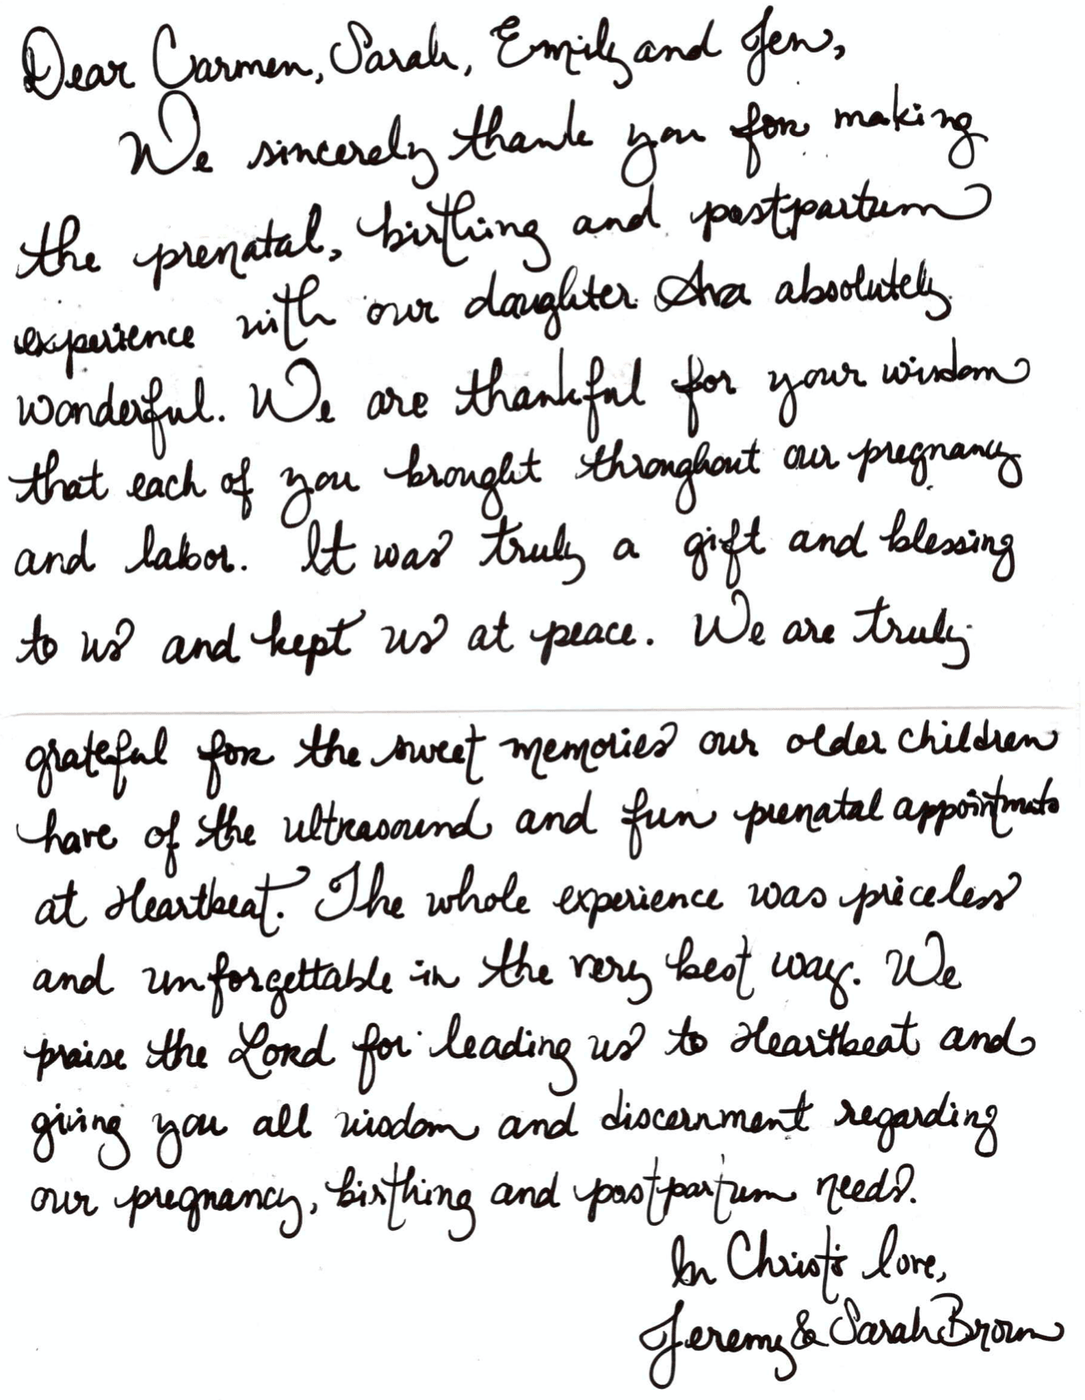 Dear Carmen, Sarah, Emily and Jen,
We sincerely thank you for making
the prenatal, birthing and postpartum
experience with our daughter Ava absolutely
wonderful. We are thankful for your wisdom
that each of you brought throughout our pregnancy
and labor. It was truly a gift and blessing
to us and kept us at peace. We are truly
grateful for the sweet memories our older children
have of the ultrasound and fun prenatal appointments
at Heartbeat. The whole experience was priceless
and unforgettable in the very best way. We
praise the Lord for leading us to Heartbeat and
giving you all wisdom and discernment regarding
our pregnancy, birthing and postpartum needs.
In Christ's love,
Jeremy & Sarah Brown